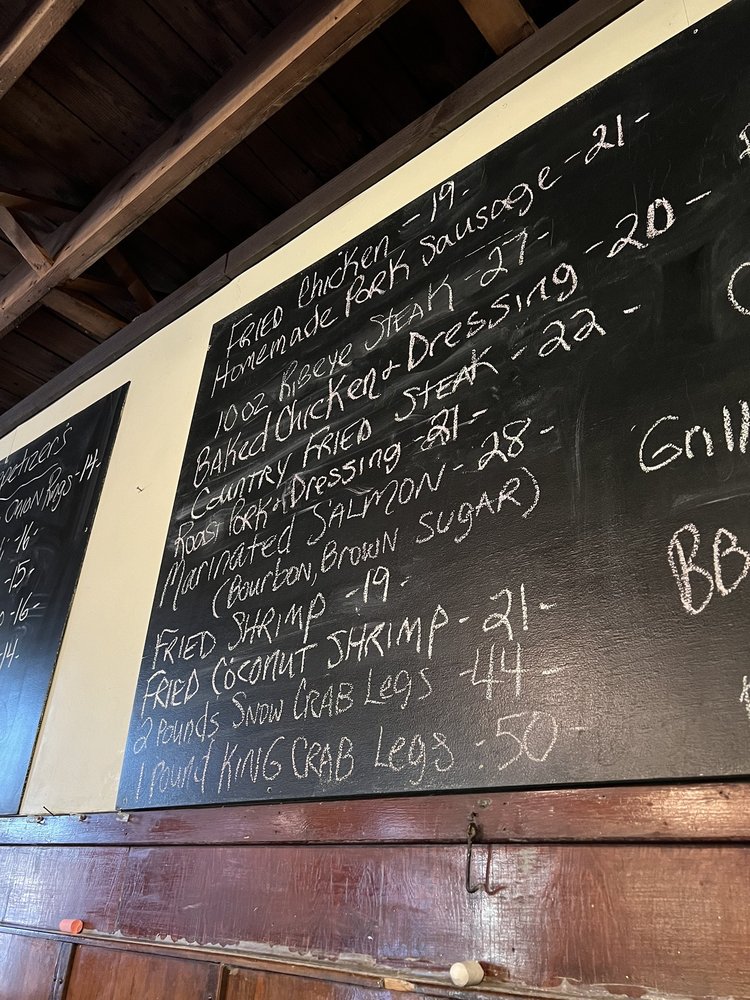 FRIED Chicken - 19-
Homemade PORK Sausage - 21-
10 oz Ribeye STEAK - 27-
BAKED Chicken + Dressing - 20 -
COUNTRY FRIED STEAK - 22 -
Roast Pork + Dressing - 21-
Marinated SALMON - 28 -
(Bourbon, Brown SUGAR)
FRIED SHRIMP - 19-
FRIED COCONUT SHRIMP - 21-
2 Pounds SNOW CRAB Legs - 44 -
1 Pound KING CRAB Legs - 50 -
Onion Rings - 14-
- 16-
- 15-
- 16-
14-
Grill
BB